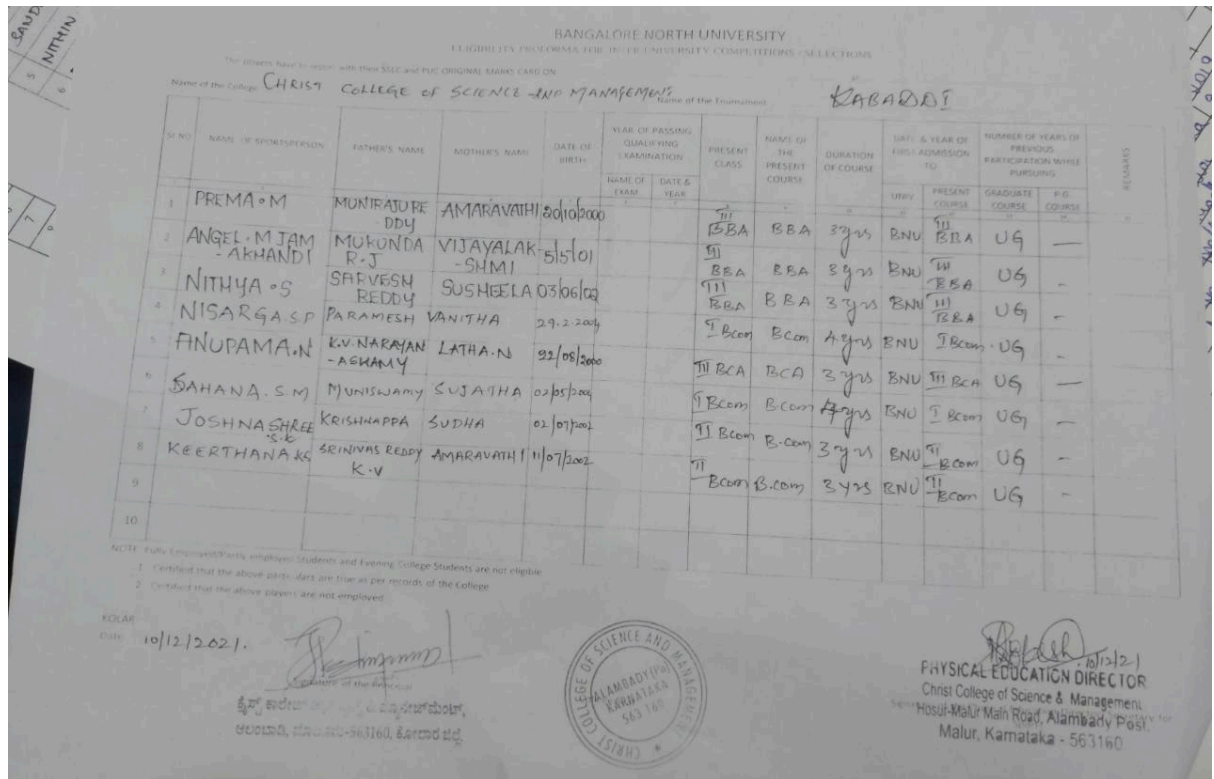 SAND
5 NITHIN
6
7
BANGALORE NORTH UNIVERSITY
ELIGIBILITY PROFORMA FOR INTER UNIVERSITY COMPETITIONS / SELECTIONS
with their SSLC and PUC ORIGINAL MARKS CARD ON
Name of the College CHRIST COLLEGE OF SCIENCE AND MANAGEMENT Name of the Tournament KABADDI
SI NO NAME OF SPORTSPERSON FATHER'S NAME MOTHER'S NAME DATE OF BIRTH YEAR OF PASSING QUALIFYING EXAMINATION PRESENT CLASS NAME OF THE PRESENT COURSE DURATION OF COURSE DATE & YEAR OF FIRST ADMISSION TO NUMBER OF YEARS OF PREVIOUS PARTICIPATION WHILE PURSUING REMARKS
NAME OF EXAM DATE & YEAR UNIV PRESENT COURSE GRADUATE COURSE P.G. COURSE
1 PREMA.M MUNIRAJURE DDY AMARAVATHI 20/10/2000 III BBA BBA 3yrs BNU III BBA UG —
2 ANGEL.M JAM -AKHANDI MUKUNDA R.J VIJAYALAK -SHMI 5/5/01 BBA BBA 3yrs BNU III BBA UG -
3 NITHYA.S SARVESH REDDY SUSHEELA 03/06/02 III BBA BBA 3yrs BNU III BBA UG -
4 NISARGA.S.P PARAMESH VANITHA I Bcom BCom 4yrs BNU I Bcom UG
5 ANUPAMA.N K.V.NARAYAN -ASWAMY LATHA.N III BCA BCA 3yrs BNU III BCA UG —
6 SAHANA.S.M MUNISWAMY SUJATHA I Bcom B.com BNU I Bcom UG -
7 JOSHNASHREE S.K KRISHNAPPA SUDHA II Bcom B.com 3yrs BNU II Bcom UG -
8 KEERTHANA KS SRINIVAS REDDY K.V AMARAVATHI 11/07/2002 II Bcom B.com 3yrs BNU II Bcom UG -
9
10
NOTE Fully Employed/Partly employed Students and Evening College Students are not eligible
1 Certified that the above particulars are true as per records of the College
2 Certified that the above players are not employed
KOLAR
Date 10/12/2021.
Signature of the Principal
ಕ್ರೈಸ್ಟ್ ಕಾಲೇಜ್ ಮ್ಯಾನೇಜ್‌ಮೆಂಟ್,
ಆಲಂಬಾಡಿ, -563160, ಕೋಲಾರ ಜಿಲ್ಲೆ.
CHRIST COLLEGE OF SCIENCE AND MANAGEMENT
ALAMBADY (Po)
KARNATAKA
563 160
10/12/21
PHYSICAL EDUCATION DIRECTOR
Christ College of Science & Management
Hosur-Malur Main Road, Alambady Post.
Malur, Karnataka - 563160